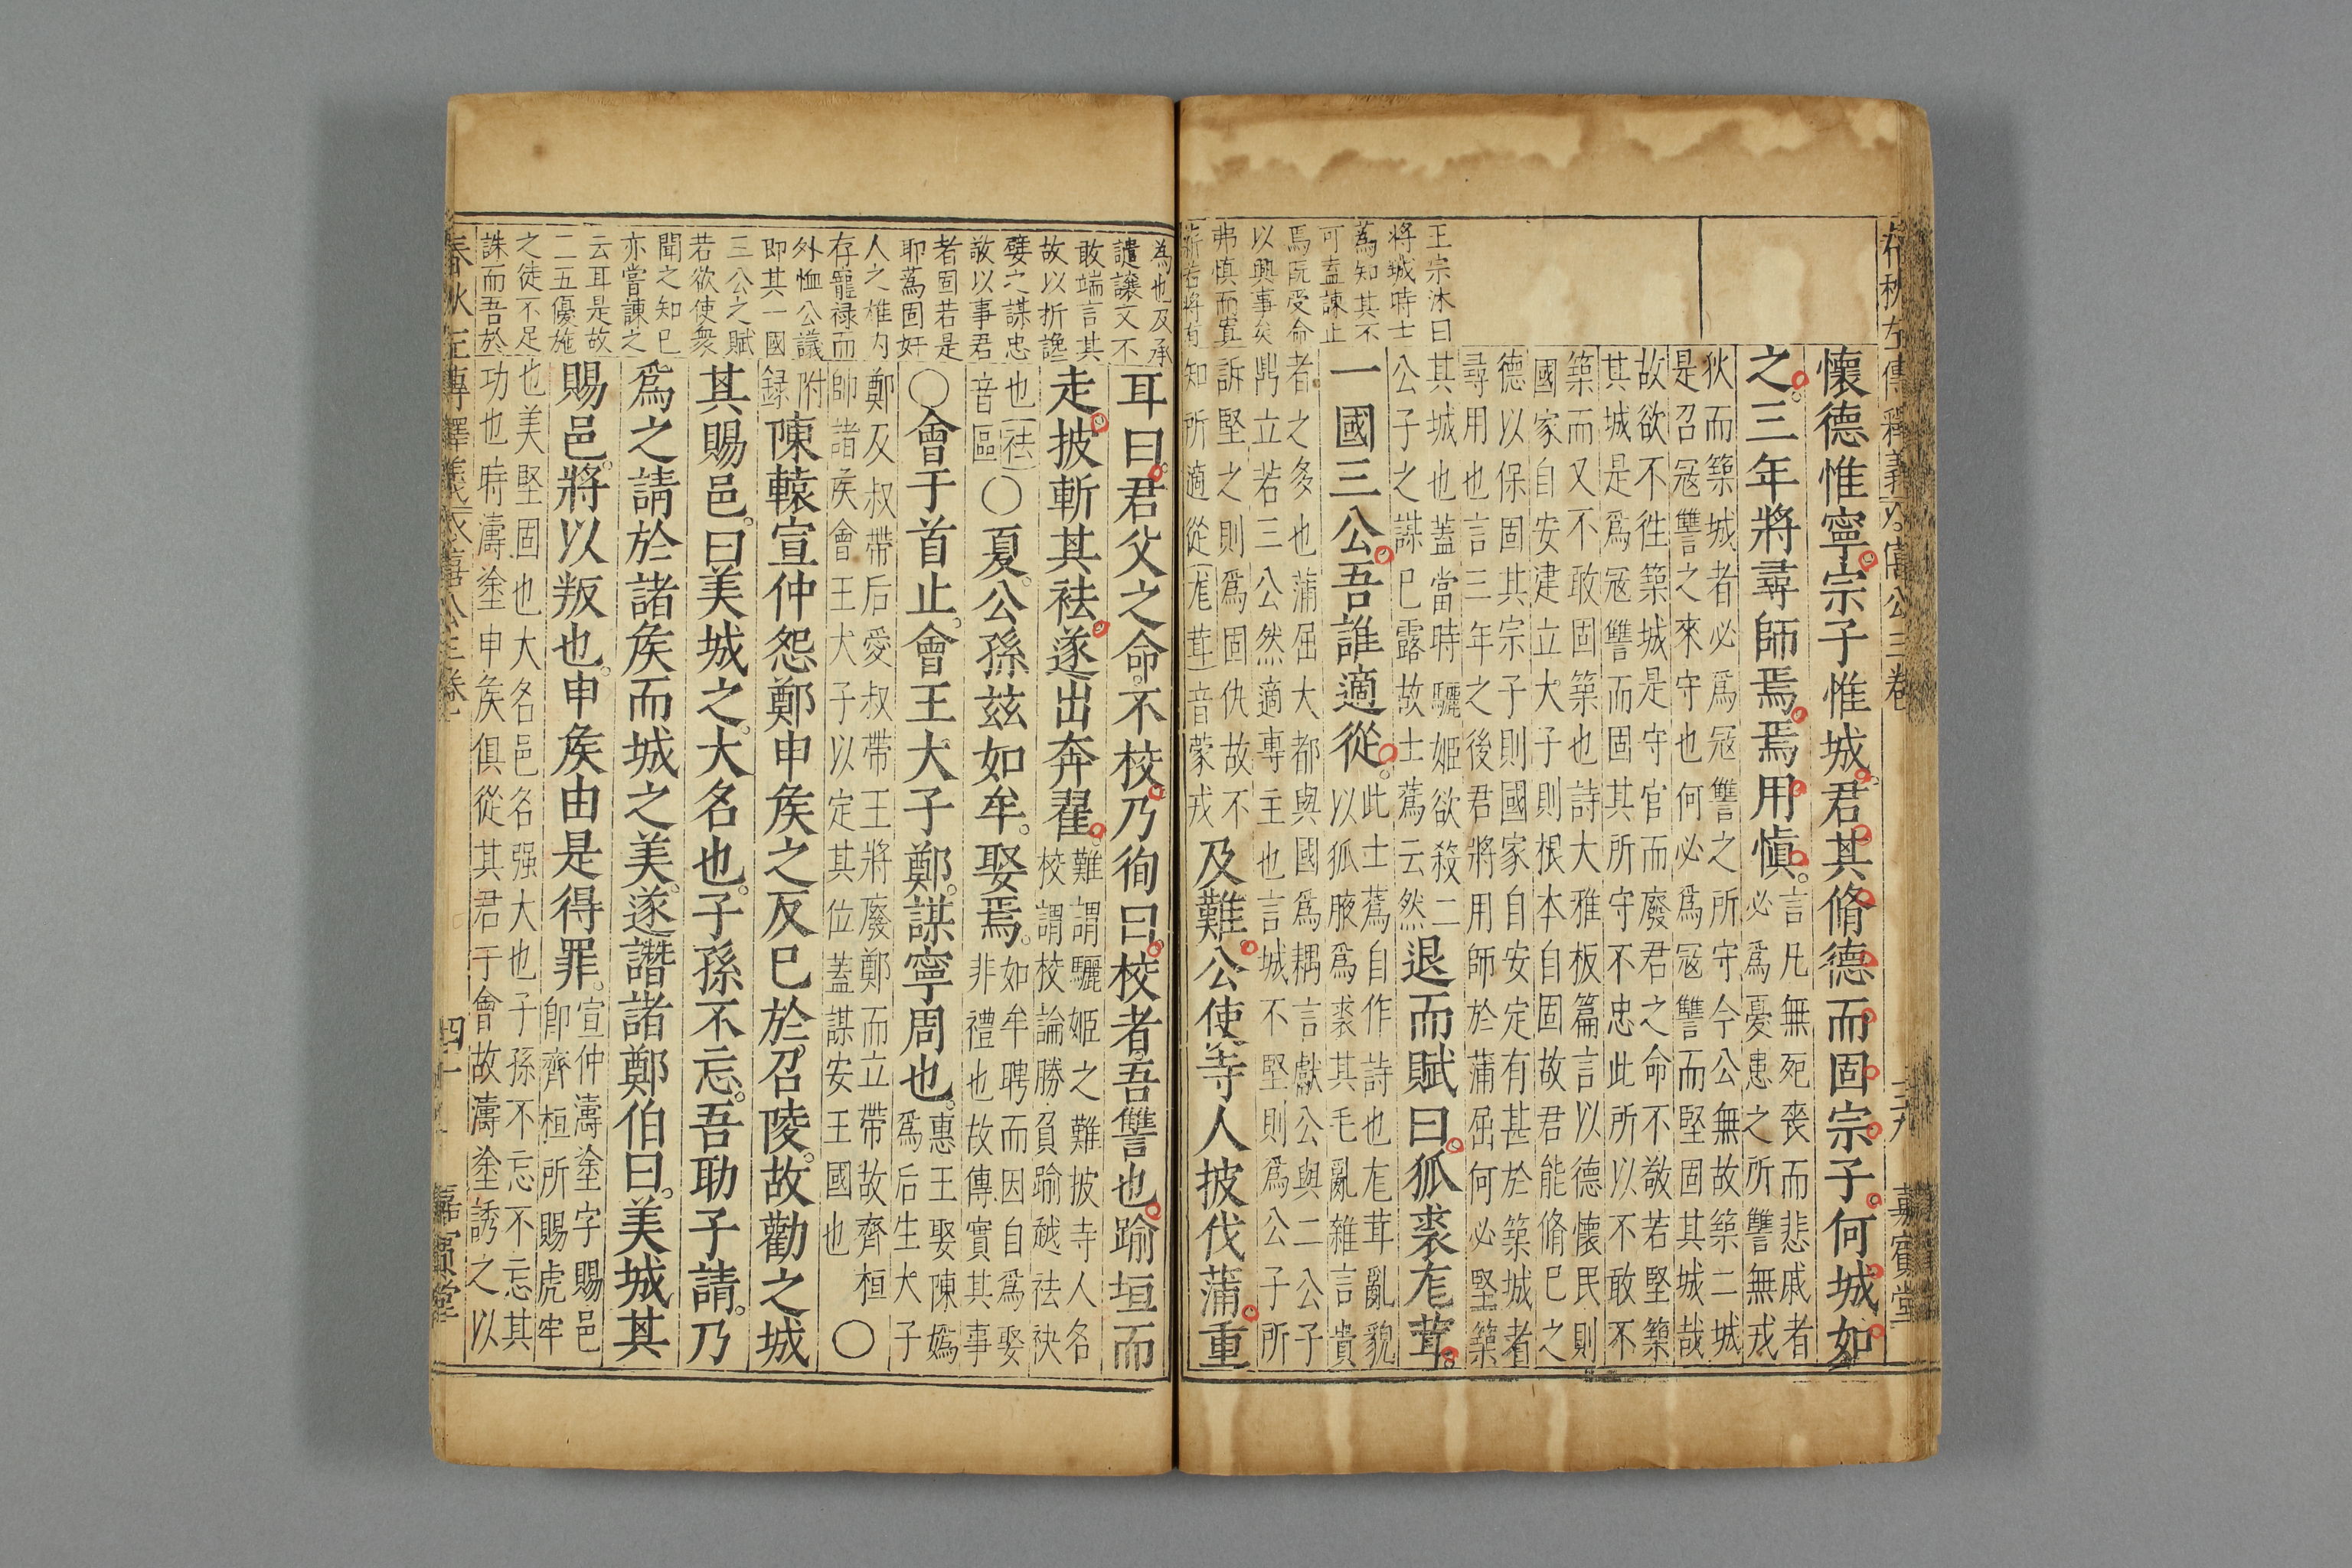 懷德惟寧宗子惟城君其脩德而固宗子何城如
之三年將尋師焉焉用愼
言凡無死喪而悲戚者
必爲憂患之所讐無戎
狄而築城者必爲寇讐之所守今公無故築二城
是召寇讐之來守也何必爲寇讐而堅固其城哉
故欲不徃築城是守官而廢君之命不敬若堅築
其城是爲寇讐而固其所守不忠此所以不敢不
築而又不敢固築也詩大雅板篇言以德懷民則
國家自安建立大子則根本自固故君能脩巳之
德以保固其宗子則國家自安定有甚於築城者
尋用也言三年之後君將用師於蒲屈何必堅築
其城也蓋當時驪姬欲殺二
公子之謀巳露故士蒍云然
退而賦曰狐裘尨茸
一國三公吾誰適從
此士蒍自作詩也尨茸亂貌
以狐腋爲裘其毛亂雜言貴
者之多也蒲屈大都與國爲耦言獻公與二公子
鼎立若三公然適專主也言城不堅則爲公子所
訴堅之則爲固仇故不
知所適從尨茸音蒙戎
及難公使寺人披伐蒲重
王宗沐曰
將城時士
蒍知其不
可盍諫止
焉旣受命
以興事矣
弗慎而寘
薪若將有
嘉賓堂
為也及承
譴讓又不
敢端言其
故以折讒
嬖之謀忠
敬以事君
者固若是
耶蒍固奸
人之雄内
存寵禄而
外恤公議
即其一國
三公之賦
若欲使衆
聞之知巳
亦嘗諫之
云耳是故
二五優施
之徒不足
誅而吾於
耳曰君父之命不校乃徇曰校者吾讐也踰垣而
走披斬其袪遂出奔翟
難謂驪姬之難披寺人名
校謂校論勝負踰越袪袂
也袪
音區
○夏公孫兹如牟娶焉
如牟聘而因自爲娶
非禮也故傳實其事
○會于首止會王大子鄭謀寧周也
惠王娶陳嬀
爲后生大子
鄭及叔帶后愛叔帶王將廢鄭而立帶故齊桓
帥諸矦會王大子以定其位蓋謀安王國也
○
附
録
陳轅宣仲怨鄭申矦之反巳於召陵故勸之城
其賜邑曰美城之大名也子孫不忘吾助子請乃
爲之請於諸矦而城之美遂譖諸鄭伯曰美城其
賜邑將以叛也申矦由是得罪
宣仲濤塗字賜邑
卽齊桓所賜虎牢
也美堅固也大名邑名强大也子孫不忘不忘其
功也時濤塗申矦俱從其君于會故濤塗誘之以